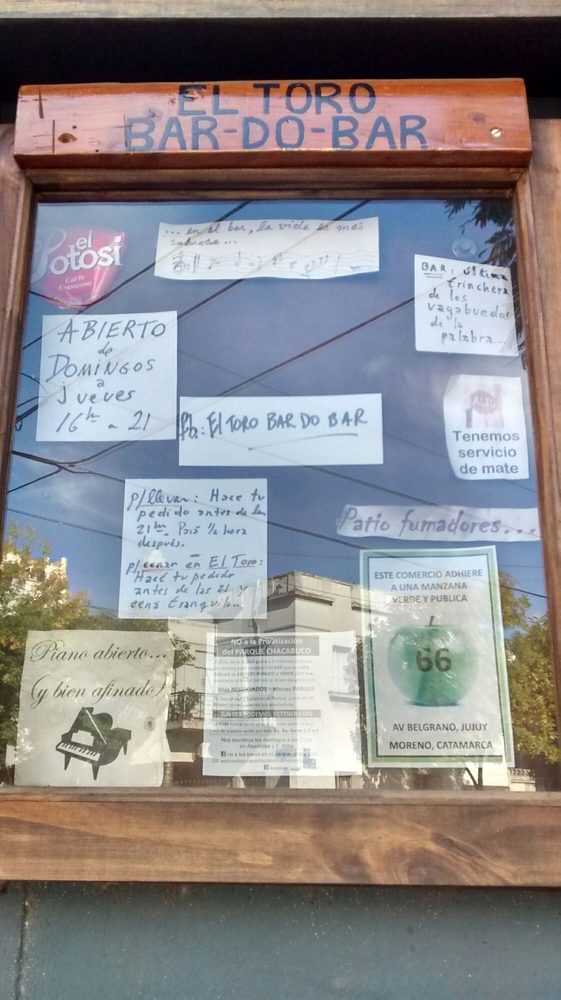 EL TORO
BAR-DO-BAR
... en el bar, la vida es mas
sabrosa...
el
Potosi
Café
Expreso
BAR: última
trinchera
de los
vagabundos
de la
palabra...
ABIERTO
de
DOMINGOS
a
jueves
16 h a 21
fb: El TORO BAR DO BAR
ALTO
Tenemos
servicio
de mate
p/llevar: Hace tu
pedido antes de las
21 h. Pasá ½ hora
después.
p/cenar en El Toro:
Hacé tu pedido
antes de las 21 y
cená tranquilo...
Patio fumadores...
ESTE COMERCIO ADHIERE
A UNA MANZANA
VERDE Y PUBLICA
66
AV BELGRANO, JUJUY
MORENO, CATAMARCA
Piano abierto...
(y bien afinado)
NO a la Privatización
del PARQUE CHACABUCO
Más NEGOCIADOS - Menos PARQUE
JUNTOS PODEMOS DEFENDERLO
Nos reunimos los domingos a las
en Asamblea y E. Mitre
no a los bares en el parque